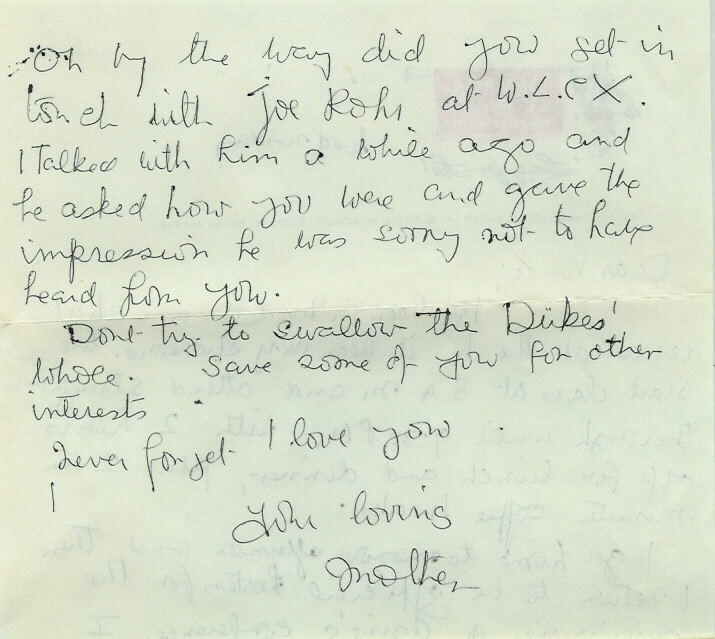 Oh by the way did you get in
touch with Joe Rohr at W.L.C X.
I Talked with him a while ago and
he asked how you were and gave the
impression he was sorry not to have
heard from you.
Dont try to swallow the Dukes'
whole. Save some of you for other
interests.
Never forget I love you.
Your loving
Mother